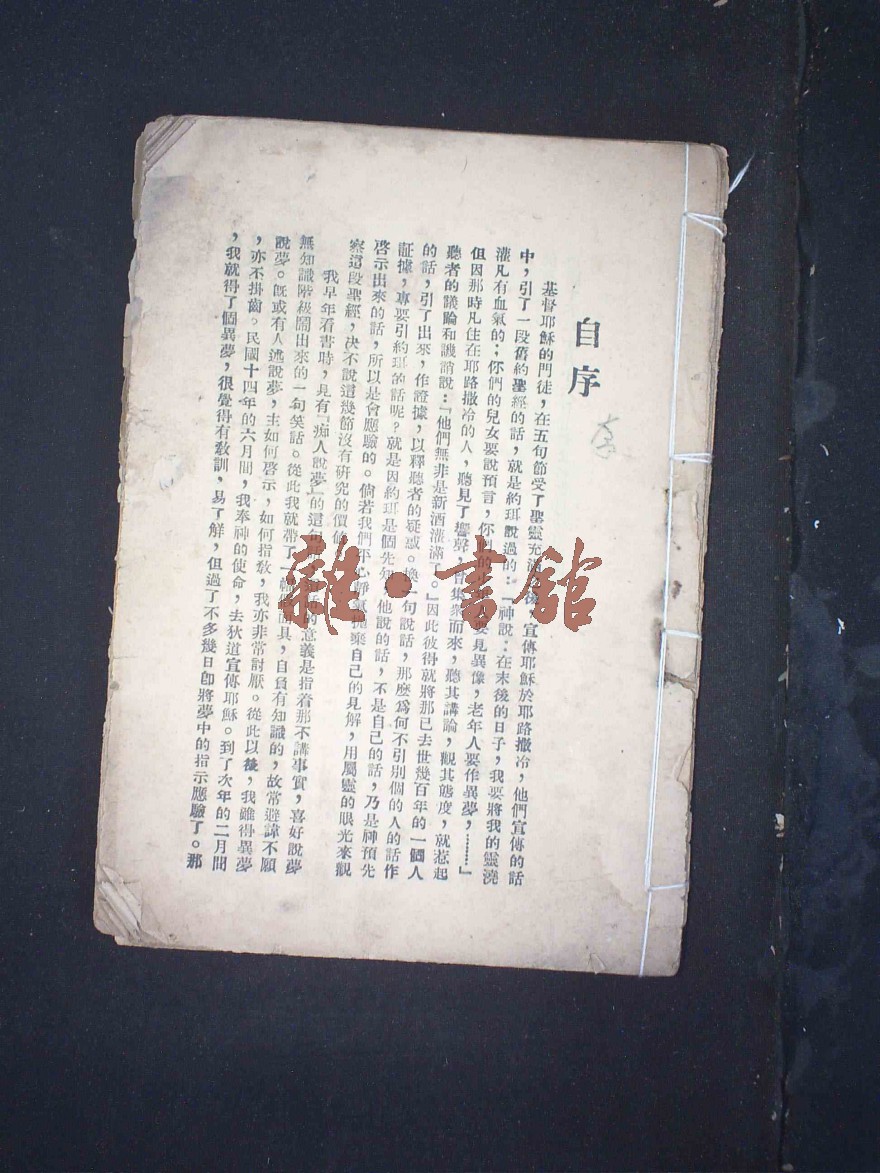 自序
基督耶穌的門徒，在五旬節受了聖靈充滿之後，宣傳耶穌於耶路撒冷，他們宣傳的話
中，引了一段舊約聖經的話，就是約珥說過的：「神說：在末後的日子，我要將我的靈澆
灌凡有血氣的；你們的兒女要說預言，你們的少年人要見異像，老年人要作異夢，………」
但因那時凡住在耶路撒冷的人，聽見了響聲，皆集衆而來，聽其講論，觀其態度，就惹起
聽者的議論和譏誚說：『他們無非是新酒灌滿了。』因此彼得就將那已去世幾百年的一個人
的話，引了出來，作證據，以釋聽者的疑惑。換一句說話，那麽為何不引別個的人的話作
証據，專要引約珥的話呢？就是因約珥是個先知，他說的話，不是自己的話，乃是神預先
啓示出來的話，所以是會應驗的。倘若我們平心靜氣拋棄自己的見解，用屬靈的眼光來觀
察這段聖經，决不說這幾節沒有硏究的價值
我早年看書時，見有「痴人說夢」的這句話的意義是指着那不講事實，喜好說夢
無知識階級鬧出來的一句笑話。從此我就帶了一輪面具，自負有知識的，故常避諱不願
說夢。旣或有人述說夢，主如何啓示，如何指敎，我亦非常討厭。從此以後，我雖得異夢
，亦不掛齒。民國十四年的六月間，我奉神的使命，去狄道宣傳耶穌。到了次年的二月間
，我就得了個異夢，很覺得有敎訓，易了解，但過了不多幾日卽將夢中的指示應驗了。那
雜·書舘